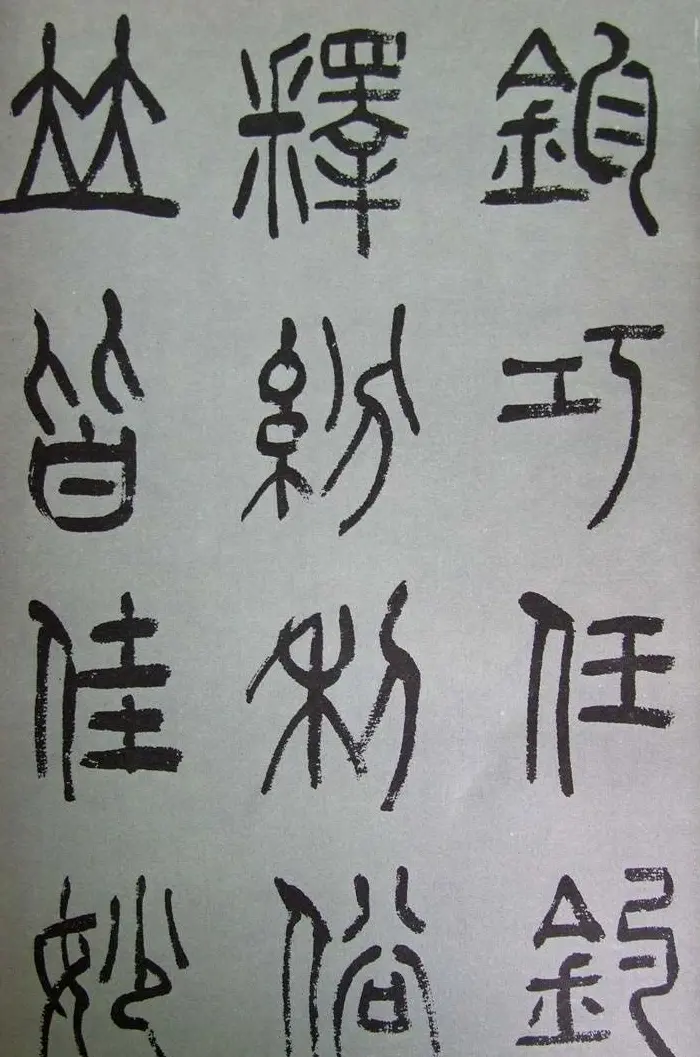 鈞巧任釣
釋紛利俗
並皆佳妙